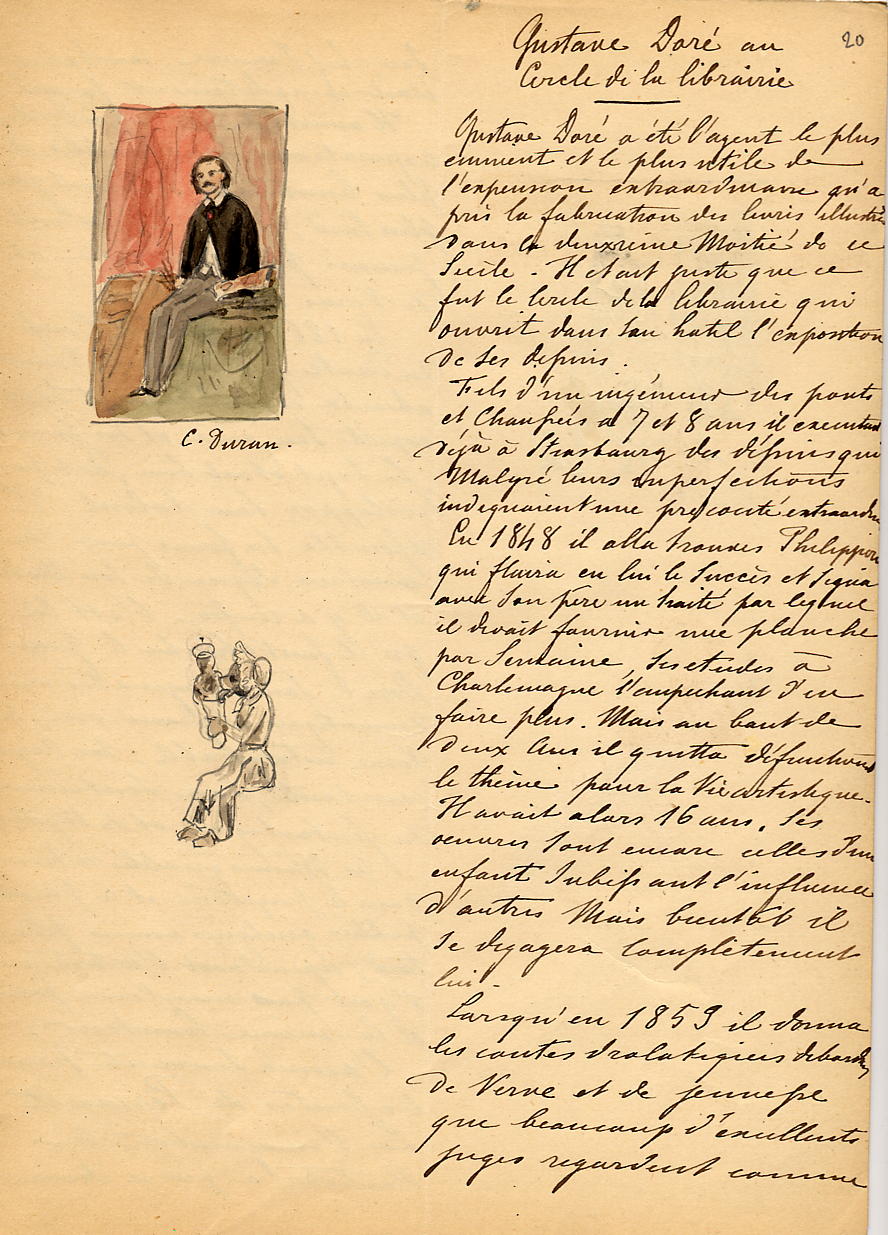 20
Gustave Doré au
Cercle de la librairie
Gustave Doré a été l'agent le plus
eminent et le plus utile de
l'expension extraordinaire qu'a
pris la fabrication des livres illustrés
dans la deuxieme Moitié de ce
Siecle. Il etait juste que ce
fut le Cercle de la librairie qui
ouvrit dans son hotel l'exposition
de ses dessins.
Fils d'un ingénieur des ponts
et Chaussées a 7 et 8 ans il executait
déjà à Strasbourg des dessins qui
Malgré leurs imperfections
indiquaient une precocité
En 1848 il alla trouver Philippon
qui flaira en lui le Succès et Signa
avec Son père un traité par lequel
il devait fournir une planche
par Semaine, Ses etudes à
Charlemagne l'empechant d'en
faire plus. Mais au bout de
deux Ans il quitta
le thème pour la Vie artistique.
Il avait alors 16 ans. Ses
oeuvres Sont encore celles d'un
enfant Subissant l'influence
d'autres Mais bientôt il
Se degagera Complètement
lui.
Lorsqu'en 1859 il donna
les contes drolatiques
de Verve et de jeunesse
que beaucoup d'excellents
juges regardent comme
C. Duran.